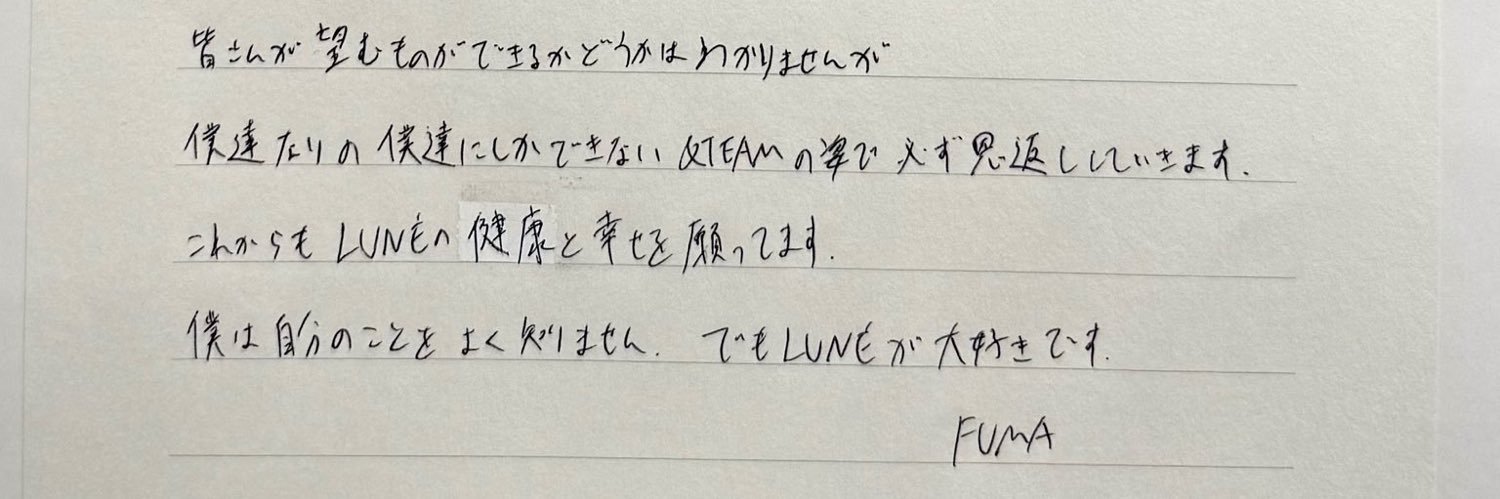 皆さんが望むものができるかどうかはわかりませんが
僕達なりの僕達にしかできない &TEAMの姿で必ず恩返ししていきます.
これからも LUNÉの健康と幸せを願ってます.
僕は自分のことをよく知りません. でもLUNÉが大好きです.
FUMA